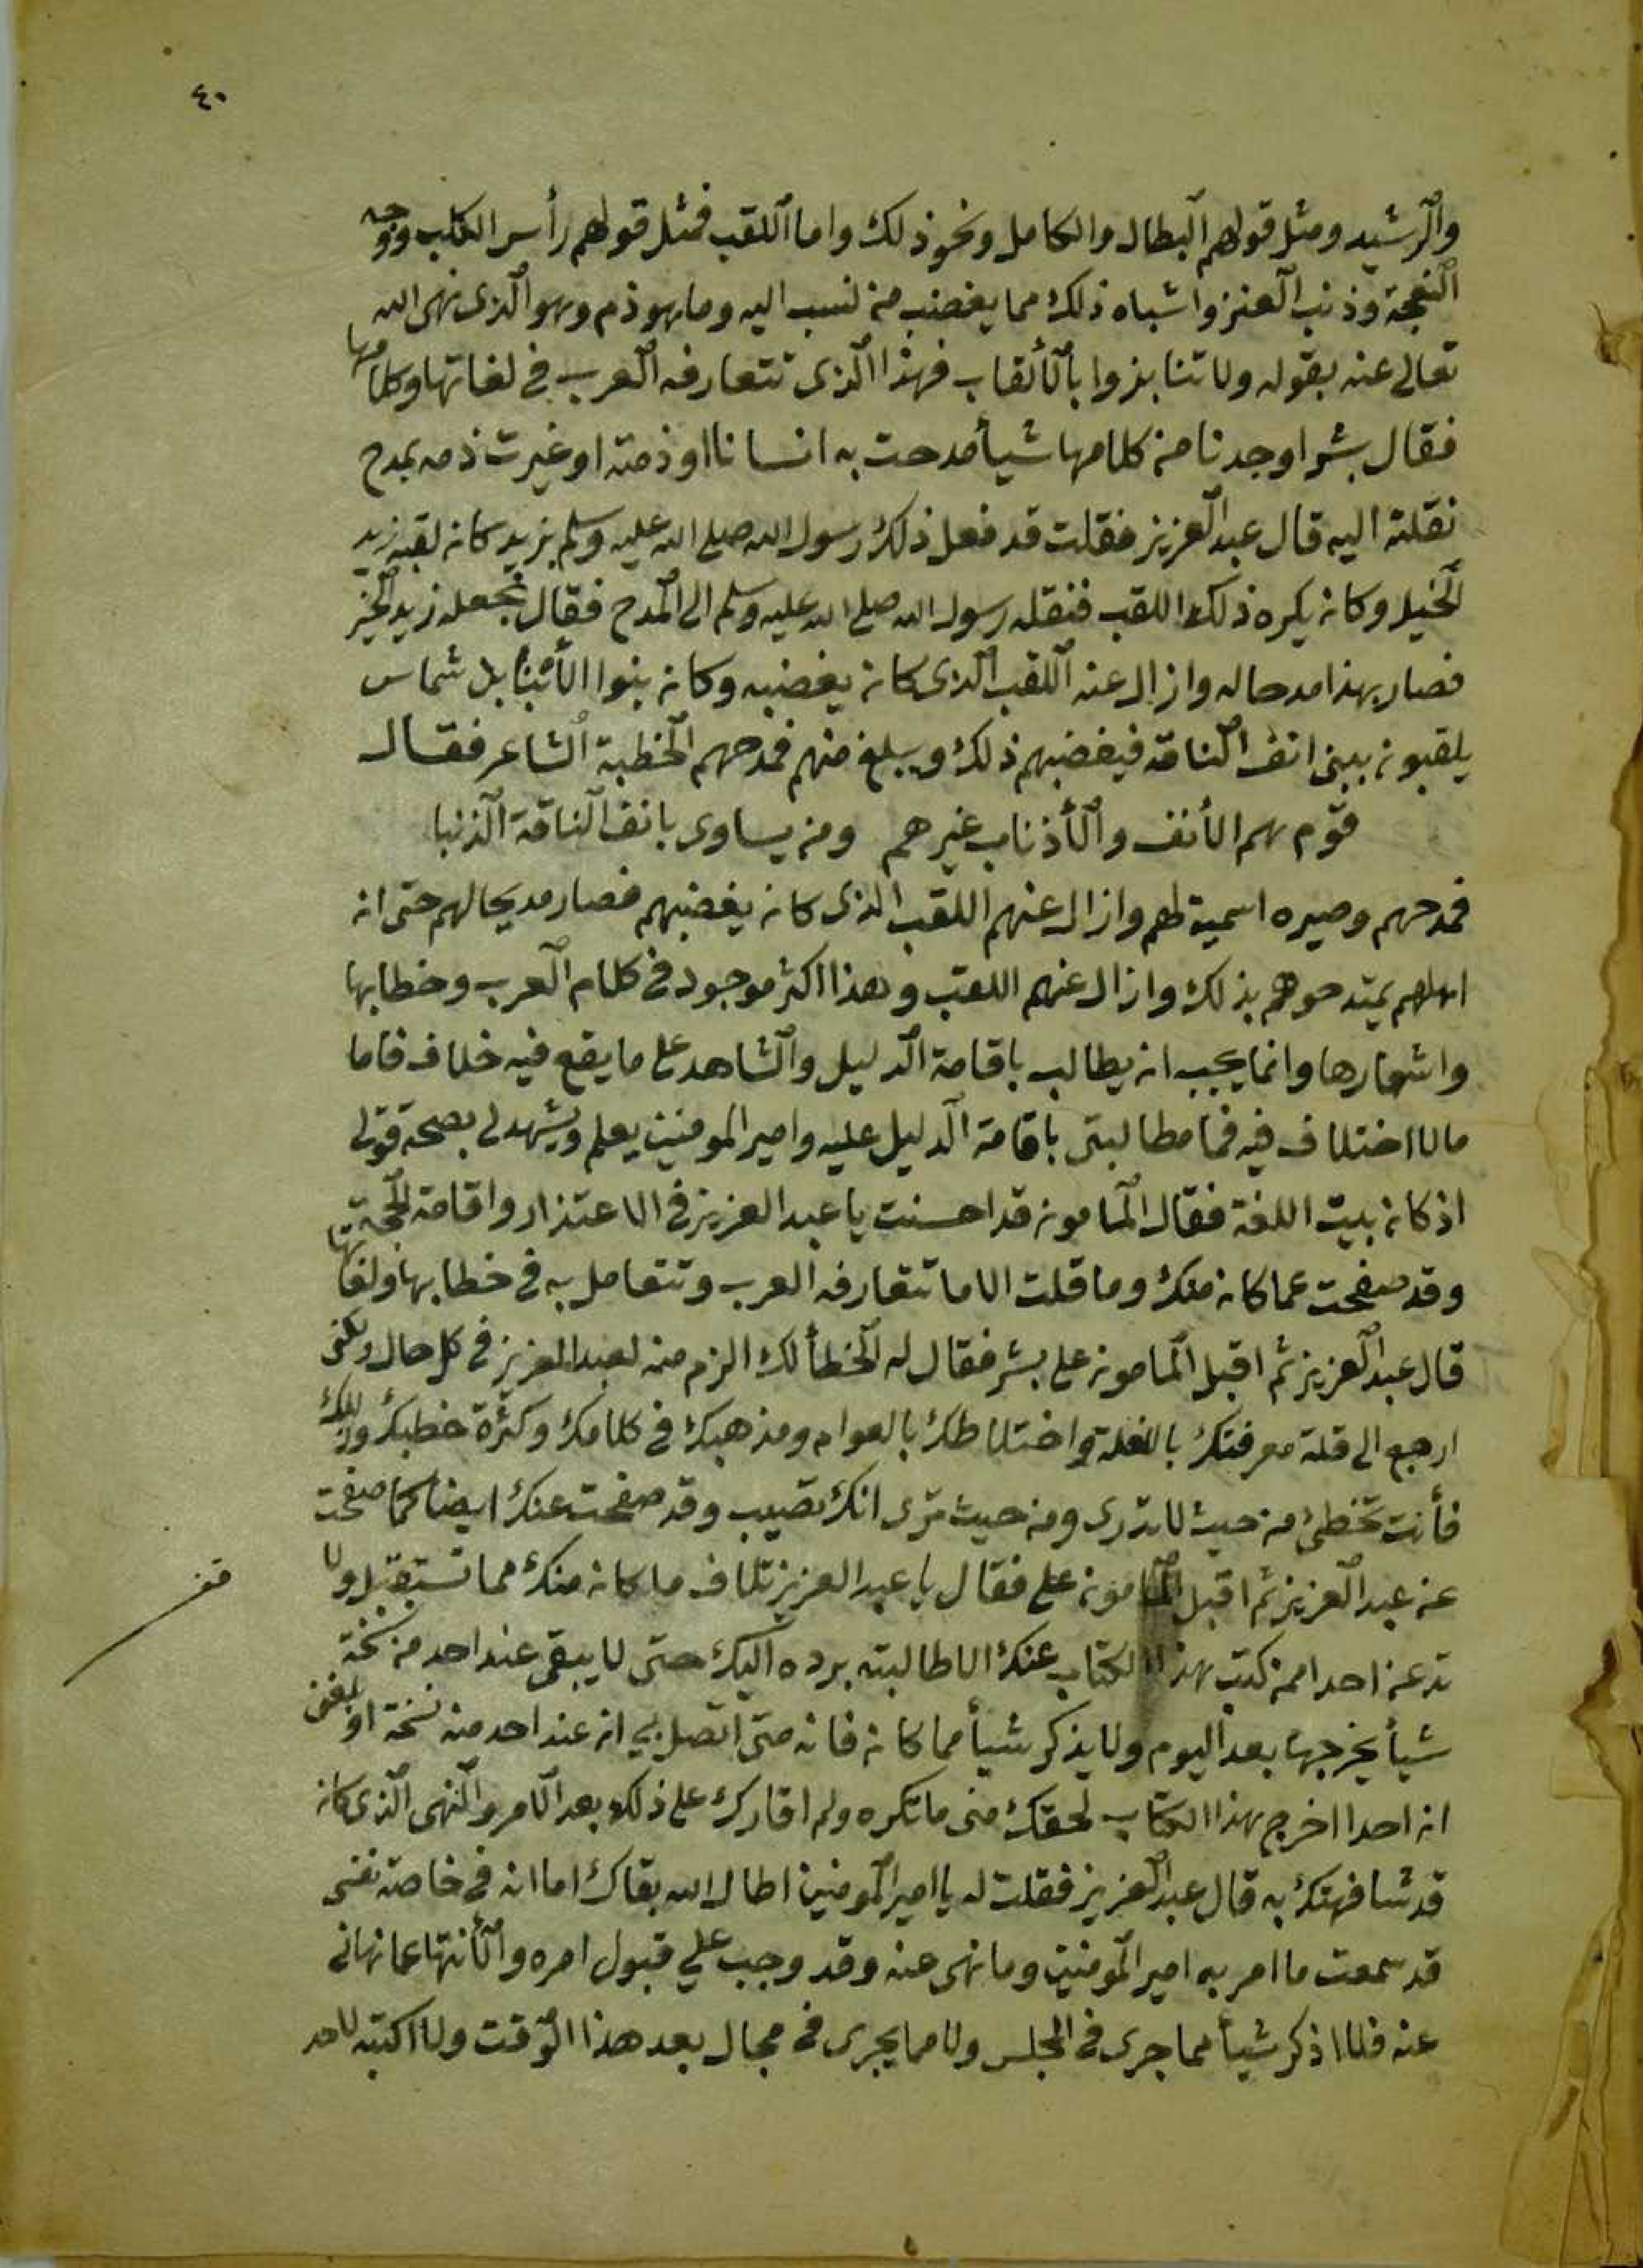 ٤٠
والرشيد ومثل قولهم البطال والكامل ونحو ذلك واما اللقب فمثل قولهم رأس الكلب ووجه
النعجة وذنب العنز واشباه ذلك مما يغضب من نسب اليه وما هو ذم وهو الذى نهى الله
تعالى عنه بقوله ولا تنابزوا بالألقاب فهذا الذى تتعارفه العرب فى لغاتها وكلامها
فقال بشر اوجدنا من كلامها شيأ مدحت به انسانا او ذمته او غيرت ذمه بمدح
نقلته اليه قال عبد العزيز فقلت قد فعل ذلك رسول الله صلى الله عليه وسلم بزيد كان لقبه زيد
الخيل وكان يكره ذلك اللقب فنقله رسول الله صلى الله عليه وسلم الى المدح فقال نجعله زيد الخير
فصار بهذا مدحا له وازال عنه اللقب الذى كان يغضبه وكان بنوا شماس
يلقبون ببنى انف الناقة فيغضبهم ذلك ويبلغ منهم فمدحهم الخطبة الشاعر فقال
قوم هم الأنف والأذناب غيرهم ومن يساوى بانف الناقة الذنبا
فمدحهم وصيره اسمية لهم وازال عنهم اللقب الذى كان يغضبهم فصار مديحا لهم حتى ان
اهلهم يمتدحوهم بذلك وازال عنهم اللقب وهذا اكثر موجود فى كلام العرب وخطابها
واشعارها وانما يجب ان يطالب باقامة الدليل والشاهد على ما يقع فيه خلاف فاما
ما لا اختلاف فيه فما مطالبتى باقامة الدليل عليه وامير المومنين يعلم ويشهد لى بصحة قولى
اذ كان بيت اللغة فقال المامون قد احسنت يا عبد العزيز فى الاعتذار واقامة الحجة
وقد صفحت عما كان منك وما قلت الا ما تتعارفه العرب وتتعامل به فى خطابها ولغاتها
قال عبد العزيز ثم اقبل المامون على بشر فقال له الخطأ لك الزم منه لعبد العزيز فى كل حال ولكن
ارجع الى قلة معرفتك باللغة واختلاطك بالعوام ومذهبك فى كلامك وكثرة خطبك
فأنت تخطئ من حيث لا تدرى ومن حيث ترى انك تصيب وقد صفحت عنك ايضا كما صفحت
عن عبد العزيز ثم اقبل المامون على فقال يا عبد العزيز تلاف ما كان منك مما تستقبل ولا
تدعن احدا ممن كتب هذا الكتاب عنك الا طالبته برده اليك حتى لا يبقى عند احد من نسخة
شيأ يخرجها بعد اليوم ولا يذكر شيأ مما كان فانه متى اتصل بى ان عند احد منه نسخة او بلغنى
ان احدا اخرج هذا الكتاب لحقك منى ما تكره ولم اقارك على ذلك بعد الامر والنهى الذى كان
قد شافهتك به قال عبد العزيز فقلت له يا امير المومنين اطال الله بقاك اما انه فى خاصة نفسى
قد سمعت ما امر به امير المومنين وما نهى عنه وقد وجب على قبول امره والأنتها عما نهانى
عنه فلا اذكر شيأ مما جرى فى المجلس ولا مما يجرى فى مجال بعد هذا الوقت ولا اكتبه لاحد